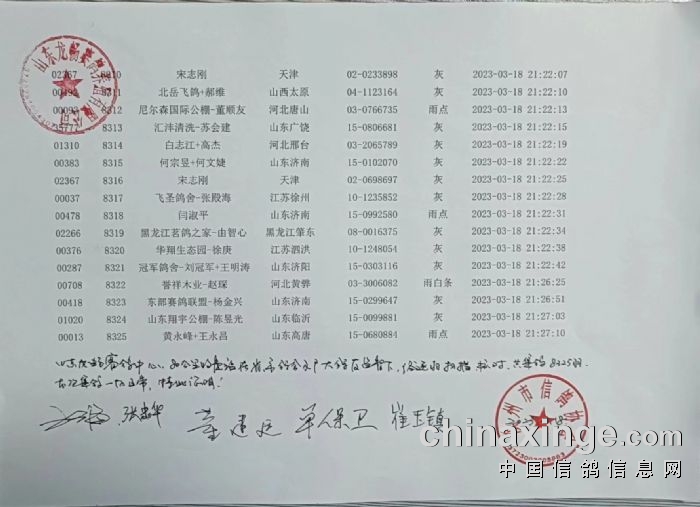 02367 8310 宋志刚 天津 02-0233898 灰 2023-03-18 21:22:07
8311 北岳飞鸽+郝维 山西太原 04-1123164 灰 2023-03-18 21:22:10
8312 尼尔森国际公棚-董顺友 河北唐山 03-0766735 雨点 2023-03-18 21:22:13
8313 汇沣清洗-苏会建 山东广饶 15-0806681 灰 2023-03-18 21:22:15
01310 8314 白志江+高杰 河北邢台 03-2065789 灰 2023-03-18 21:22:19
00383 8315 何宗昱+何文婕 山东济南 15-0102070 灰 2023-03-18 21:22:22
02367 8316 宋志刚 天津 02-0698697 灰 2023-03-18 21:22:25
00037 8317 飞圣鸽舍-张殿海 江苏徐州 10-1235852 灰 2023-03-18 21:22:28
00478 8318 闫淑平 山东济南 15-0992580 雨点 2023-03-18 21:22:31
02266 8319 黑龙江茗鸽之家-由智心 黑龙江肇东 08-0016375 灰 2023-03-18 21:22:34
00376 8320 华翔生态园-徐庚 江苏泗洪 10-1248054 灰 2023-03-18 21:22:38
00287 8321 冠军鸽舍-刘冠军+王明涛 山东济阳 15-0303116 灰 2023-03-18 21:22:42
00708 8322 誉祥木业-赵琛 河北黄骅 03-3006082 雨白条 2023-03-18 21:26:25
00418 8323 东部赛鸽联盟-杨金兴 山东济南 15-0299647 灰 2023-03-18 21:26:51
01020 8324 山东翔宇公棚-陈昱光 山东临沂 15-0099881 灰 2023-03-18 21:27:03
00013 8325 黄永峰+王永昌 山东高唐 15-0680884 雨点 2023-03-18 21:27:10
共集鸽8325羽
一切正常,特此证明!
董建廷 单保卫 崔玉镇
州市信鸽协
chinaxinge.com
中国信鸽信息网